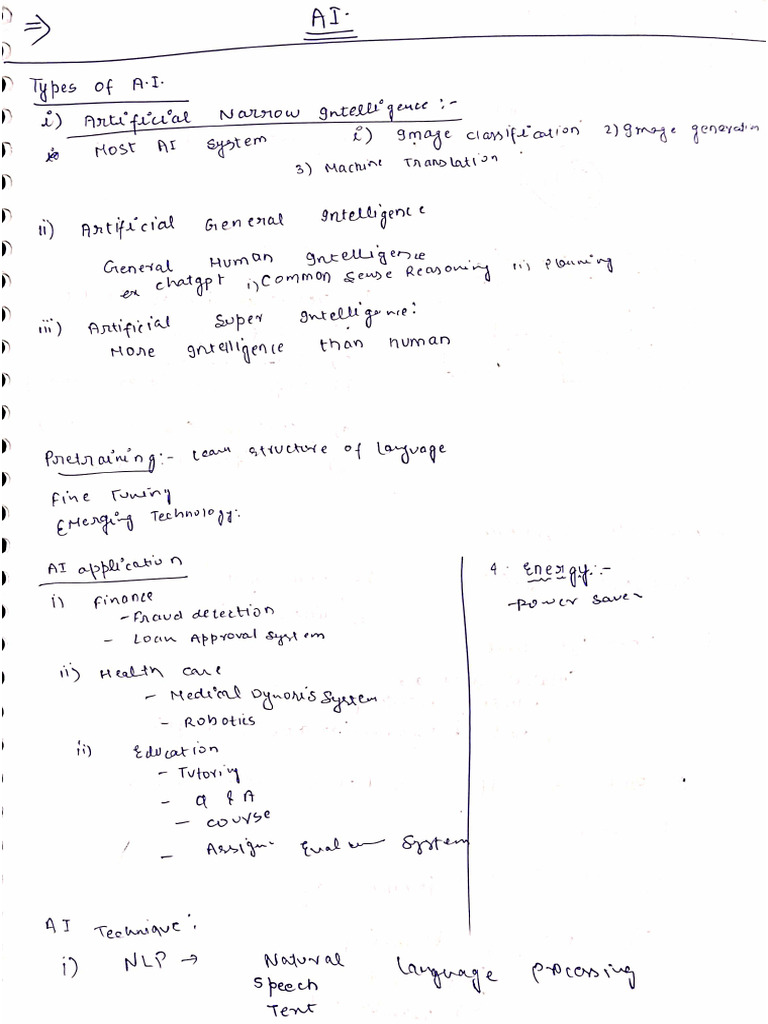 ⇒ AI.
Types of A.I.
i) Artificial Narrow Intelligence :-
Most AI System i) Image classification 2) Image generation
3) Machine Translation
ii) Artificial General Intelligence
General Human Intelligence
ex chatgpt i) Common Sense Reasoning ii) Planning
iii) Artificial Super Intelligence:
More Intelligence than human
Pretraining:- Learn structure of language
Fine Tuning
Emerging Technology:
AI application
i) Finance
- Fraud detection
- Loan Approval System
ii) Health care
- Medical Dynoris System
- Robotics
ii) Education
- Tutoring
- Q & A
- course
- Assign. System
4. Energy:-
- Power saver
AI Technique:
i) NLP → Natural Language Processing
Speech
Text